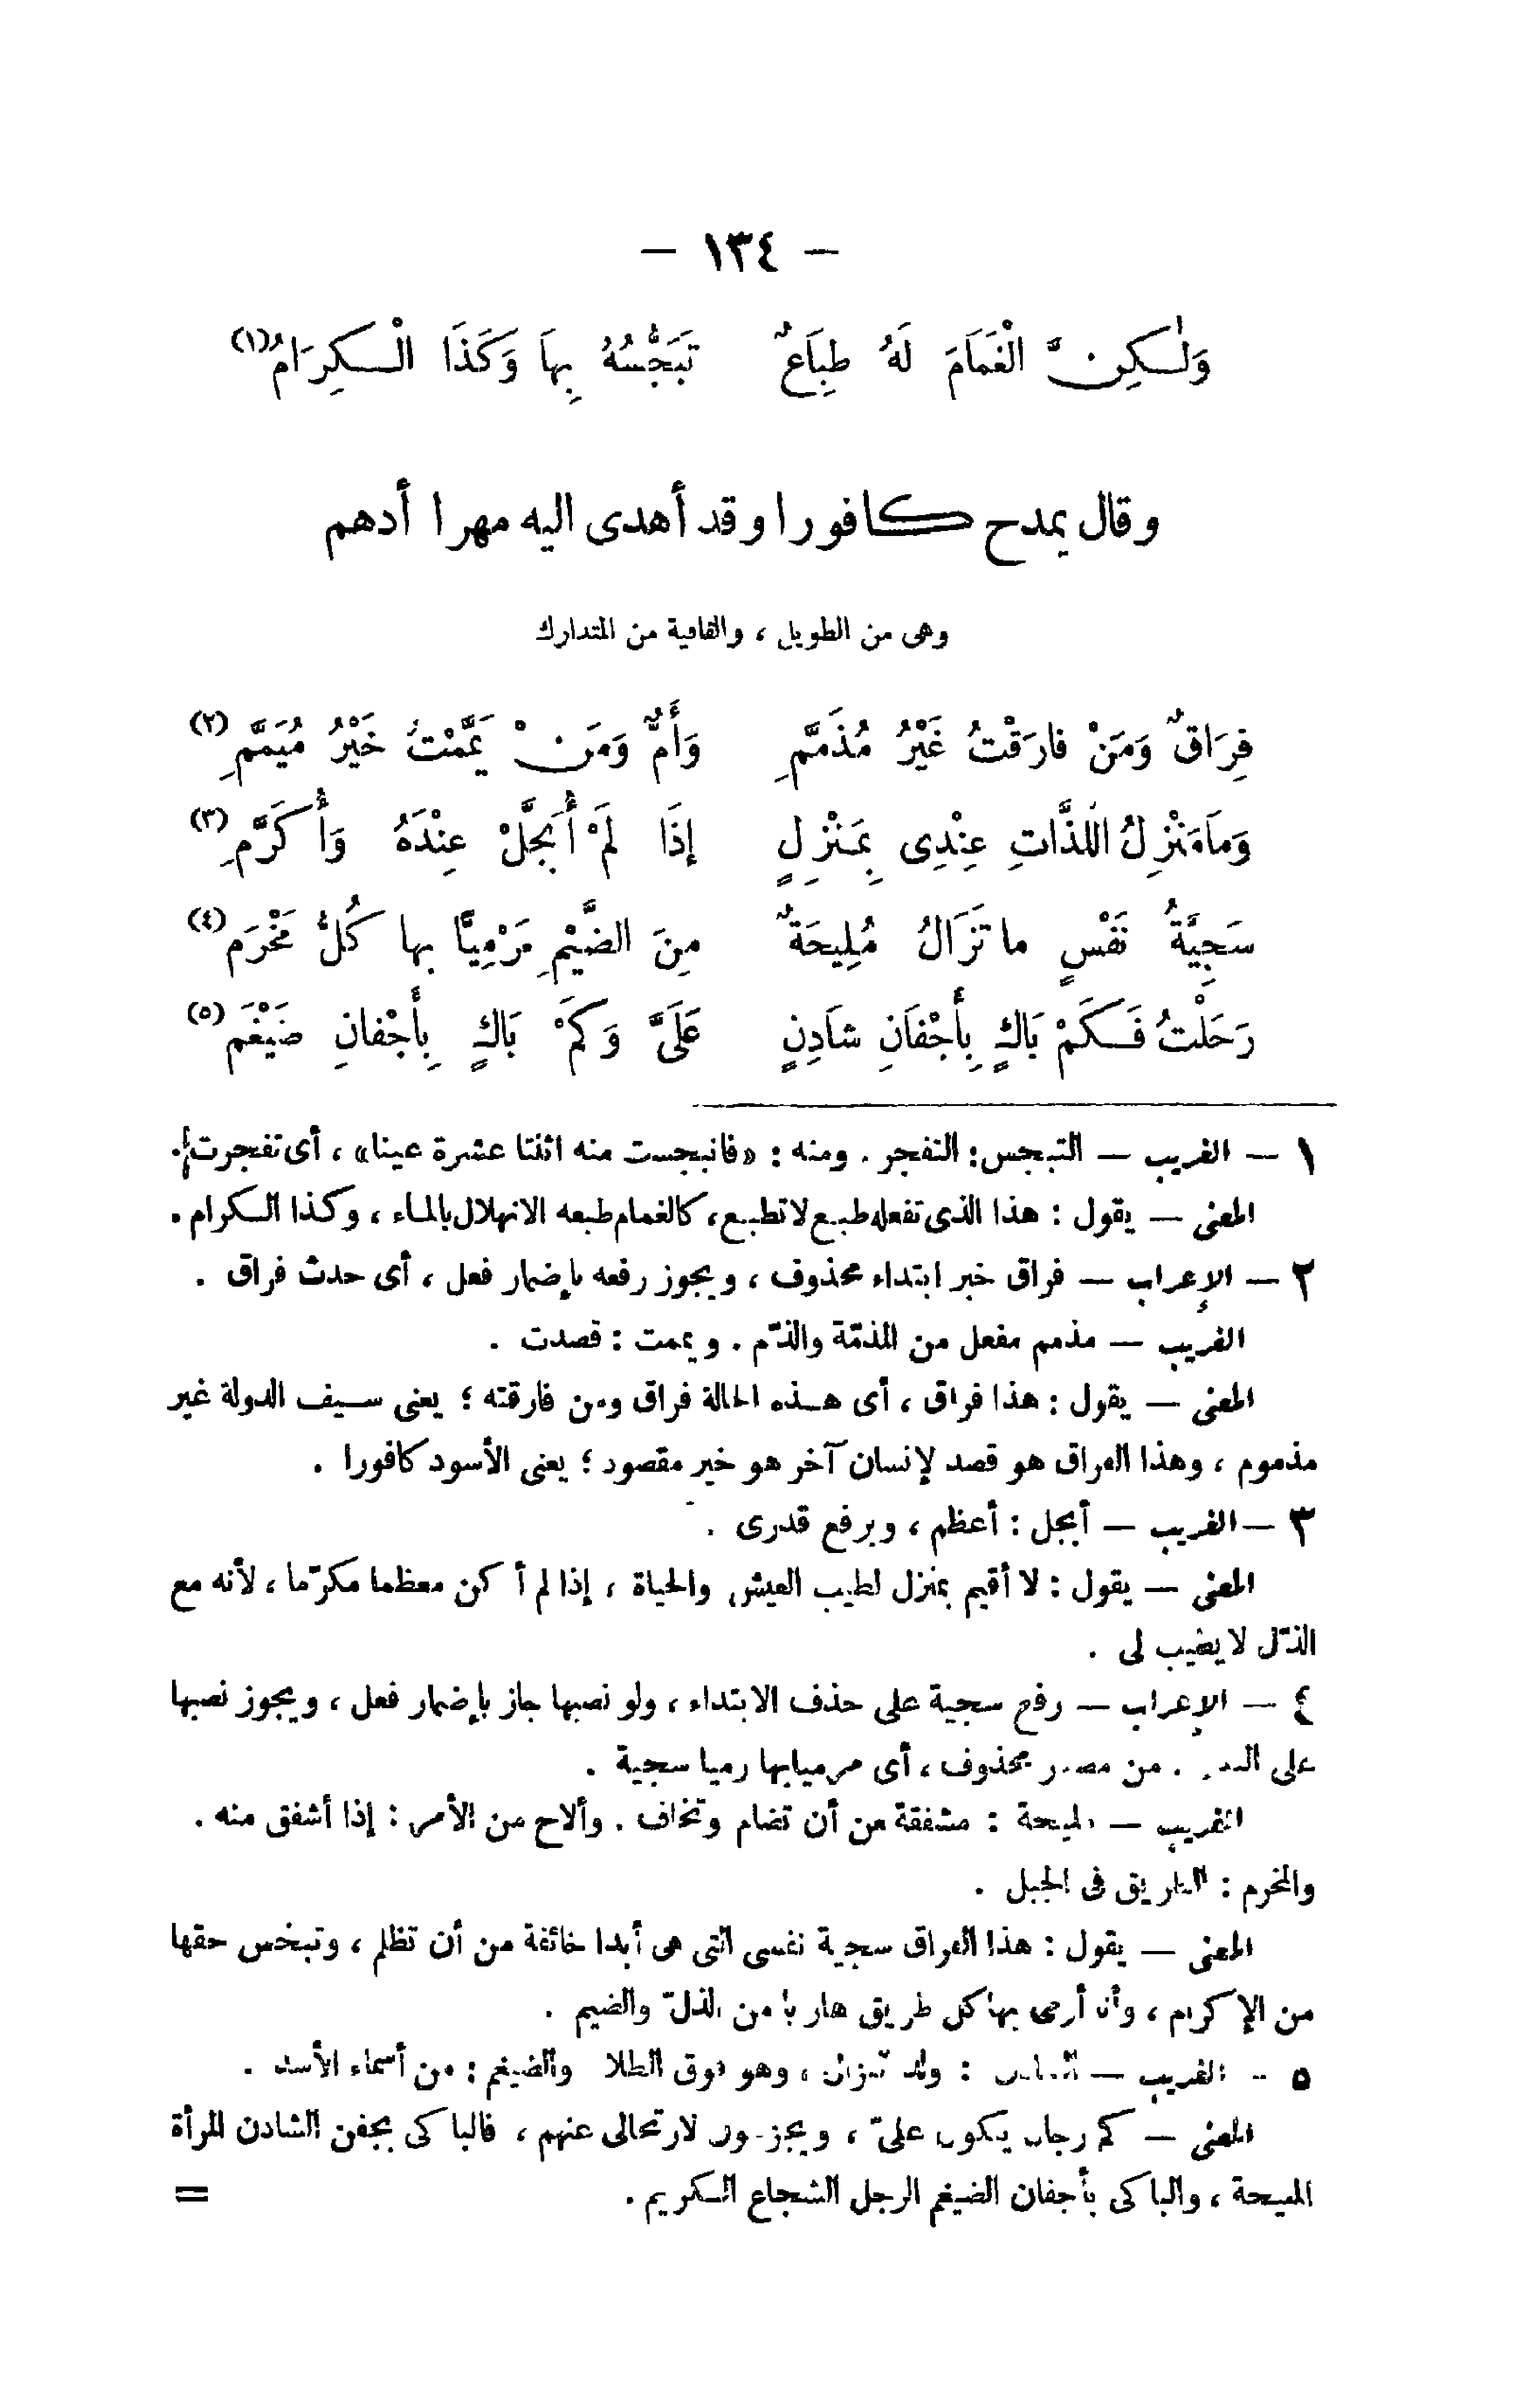 — ١٣٤ —
وَلٰكِنَّ الْغَمَامَ لَهُ طِبَاعٌ تَبَجُّسُهُ بِهاَ وَكَذَا الْكِرَامُ(١)
وقال يمدح كافورا وقد أهدى اليه مهرا أدهم
وهى من الطويل ، والقافية من المتدارك
فِرَاقٌ وَمَنْ فارَقْتُ غَيْرُ مُذَمَّمِ وَأَمٌّ وَمَنْ يَمَّمْتُ خَيْرُ مُيَمَّمِ(٢)
وَماَ مَنْزِلُ اللَّذَّاتِ عِنْدِى بِمَنْزِلٍ إِذَا لَمْ أُبَجَّلْ عِنْدَهُ وَأُكَرَّمِ(٣)
سَجِيَّةُ نَفْسٍ ما تَزَالُ مُلِيحَةٌ مِنَ الضَّيْمِ مَرْمِيًّا بها كُلُّ مَخْرَمِ(٤)
رَحَلْتُ فَكَمْ بَاكٍ بِأَجْفَانِ شاَدِنٍ عَلَىَّ وَكَمْ بَاكٍ بِأَجْفانِ ضَيْغَمِ(٥)
١ — الغريب — التبجس: التفجر . ومنه : «فانبجست منه اثنتا عشرة عينا» ، أى تفجرت .
المعنى — يقول : هذا الذى تفعله طبع لا تطبع ، كالغمام طبعه الانهلال بالماء ، وكذا الكرام .
٢ — الإعراب — فراق خبر ابتداء محذوف ، ويجوز رفعه بإضمار فعل ، أى حدث فراق .
الغريب — مذمم مفعل من المذمّة والذّم . ويممت : قصدت .
المعنى — يقول : هذا فراق ، أى هذه الحالة فراق ومن فارقته ؛ يعنى سيف الدولة غير
مذموم ، وهذا الفراق هو قصد لإنسان آخر هو خير مقصود ؛ يعنى الأسود كافورا .
٣ — الغريب — أبجل : أعظم ، ويرفع قدرى .
المعنى — يقول : لا أقيم بمنزل لطيب العيش والحياة ، إذا لم أكن معظما مكرّما ، لأنه مع
الذّل لا يطيب لى .
٤ — الإعراب — رفع سجية على حذف الابتداء ، ولو نصبها جاز بإضمار فعل ، ويجوز نصبها
على من مصدر محذوف ، أى مرميا بها رميا سجية .
الغريب — المليحة : مشفقة من أن تضام وتخاف . وألاح من الأمر : إذا أشفق منه .
والمخرم : الطريق فى الجبل .
المعنى — يقول : هذا الفراق سجية نفسى التى هى أبدا خائفة من أن تظلم ، وتبخس حقها
من الإكرام ، وأنا أرمى بها كل طريق هاربا من الذلّ والضيم .
٥ — الغريب — الشادن : ولد الغزال ، وهو فوق الطلا والضيغم : من أسماء الأسد .
المعنى — كم رجال يبكون علىّ ، ويجزعون لارتحالى عنهم ، فالباكى بجفن الشادن المرأة
المليحة ، والباكى بأجفان الضيغم الرجل الشجاع الكريم .
=